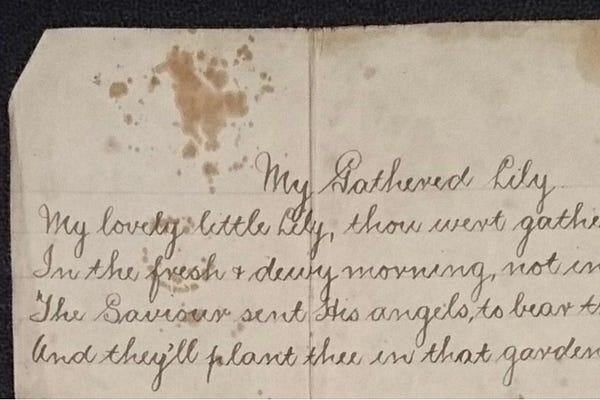 My Gathered Lily
My lovely little Lily, thou wert gathe
In the fresh & dewy morning, not in
"The Saviour sent His angels, to bear th
And they'll plant thee in that garden